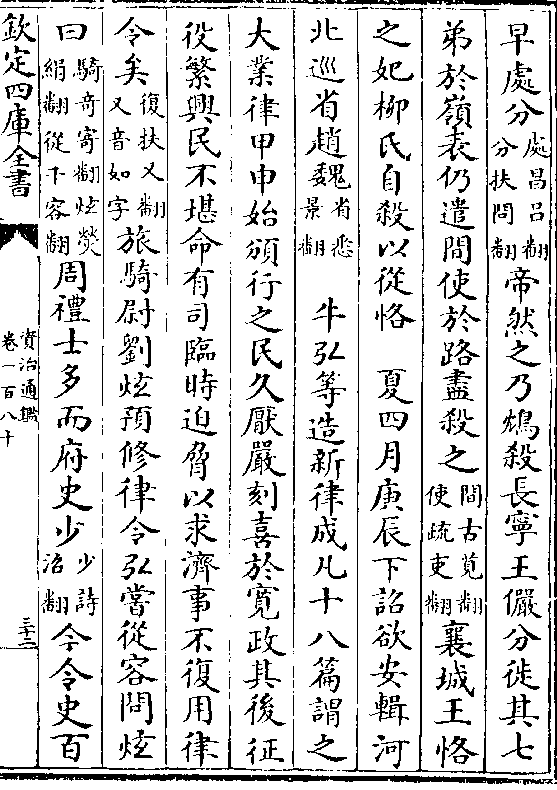 早處分處昌呂翻分扶問翻帝然之乃鴆殺長寧王儼分徙其七
弟於嶺表仍遣間使於路盡殺之間古莧翻使疏吏翻襄城王恪
之妃柳氏自殺以從恪　夏四月庚辰下詔欲安輯河
北巡省趙魏省悉景翻　牛弘等造新律成凡十八篇謂之
大業律甲申始頒行之民久厭嚴刻喜於寬政其後征
役繁興民不堪命有司臨時迫脅以求濟事不復用律
令矣復扶又翻又音如字旅騎尉劉炫預修律令弘嘗從容問炫
曰騎奇寄翻炫熒絹翻從下容翻周禮士多而府史少少詩沼翻今令史百
欽定四庫全書
資治通鑑
卷一百八十
三十二